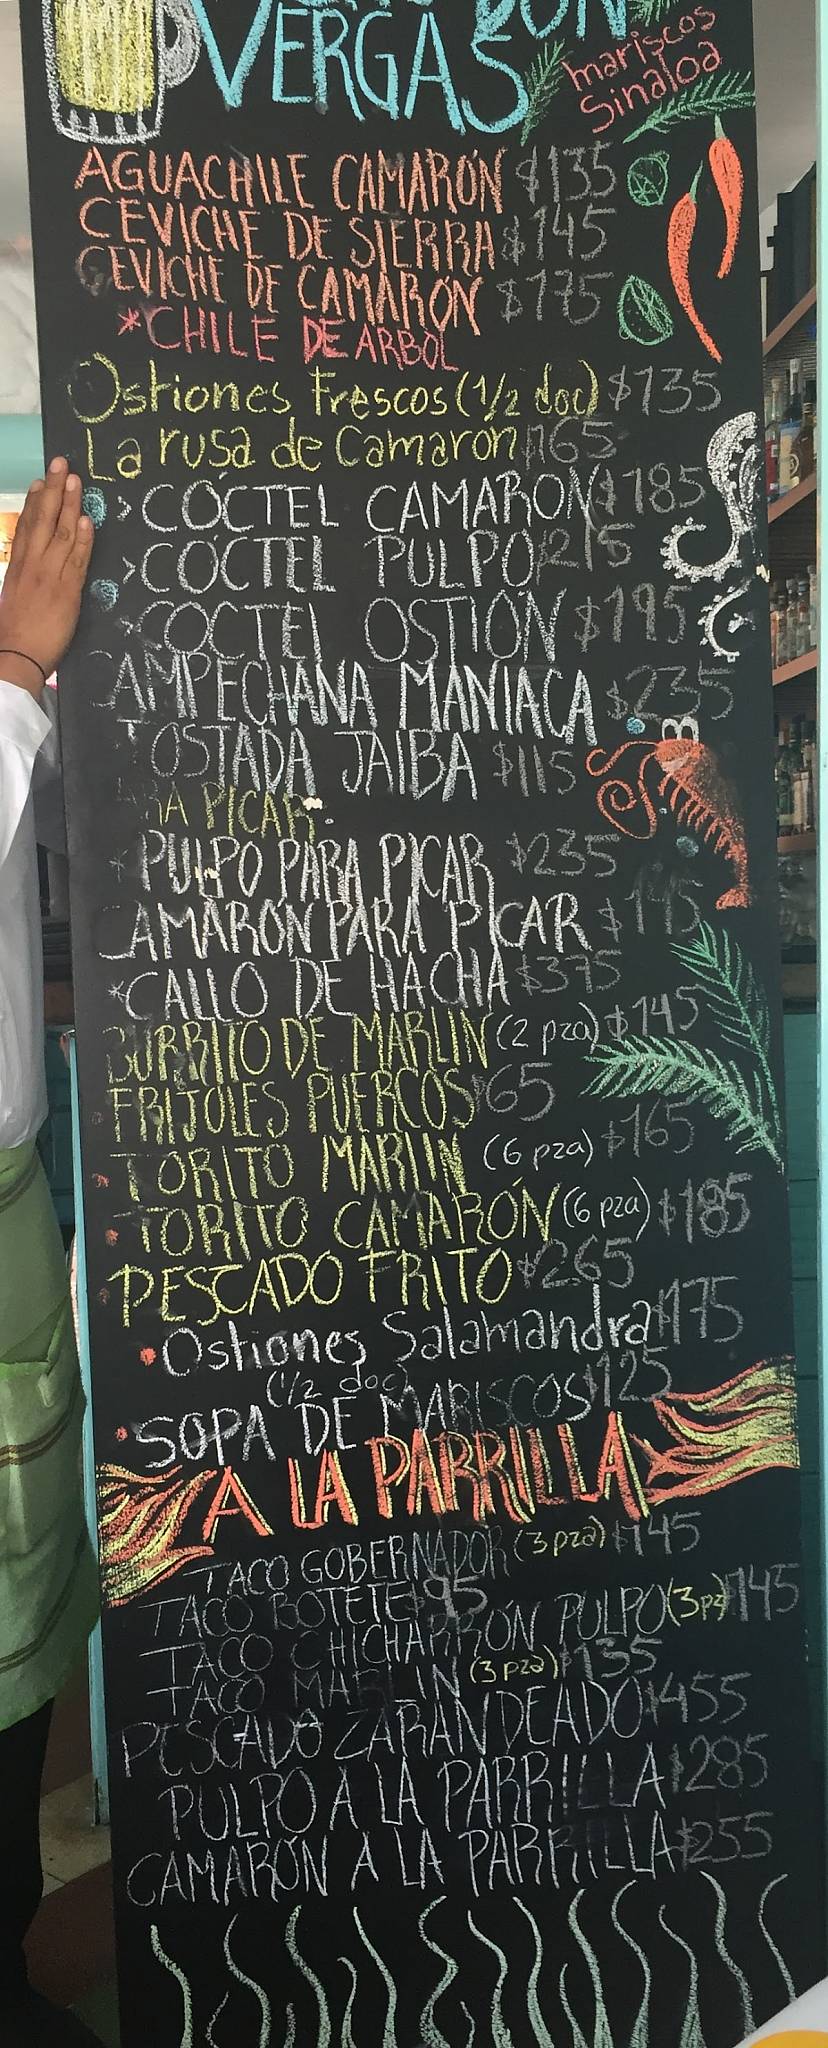 DON
VERGAS
mariscos
Sinaloa
AGUACHILE CAMARÓN $135
CEVICHE DE SIERRA $145
CEVICHE DE CAMARÓN $175
*CHILE DE ARBOL
Ostiones Frescos (1/2 doc) $135
La rusa de Camarón $165
>COCTEL CAMARON $185
>COCTEL PULPO $215
>COCTEL OSTIÓN $195
CAMPECHANA MANIACA $235
TOSTADA JAIBA $115
PICAR
* PULPO PARA PICAR $235
CAMARÓN PARA PICAR
*CALLO DE HACHA $375
BURRITO DE MARLIN (2 pza) $145
FRIJOLES PUERCOS $65
TORITO MARLIN (6 pza) $165
TORITO CAMARÓN (6 pza) $185
PESCADO FRITO $265
Ostiones Salamandra $175
(1/2 doc)
SOPA DE MARISCOS $125
A LA PARRILLA
TACO GOBERNADOR (3 pza) $145
TACO BOTETE $95
TACO CHICHARRÓN PULPO (3pz) $145
TACO MARLIN (3 pza) $135
PESCADO ZARANDEADO $455
PULPO A LA PARRILLA $285
CAMARÓN A LA PARRILLA $255